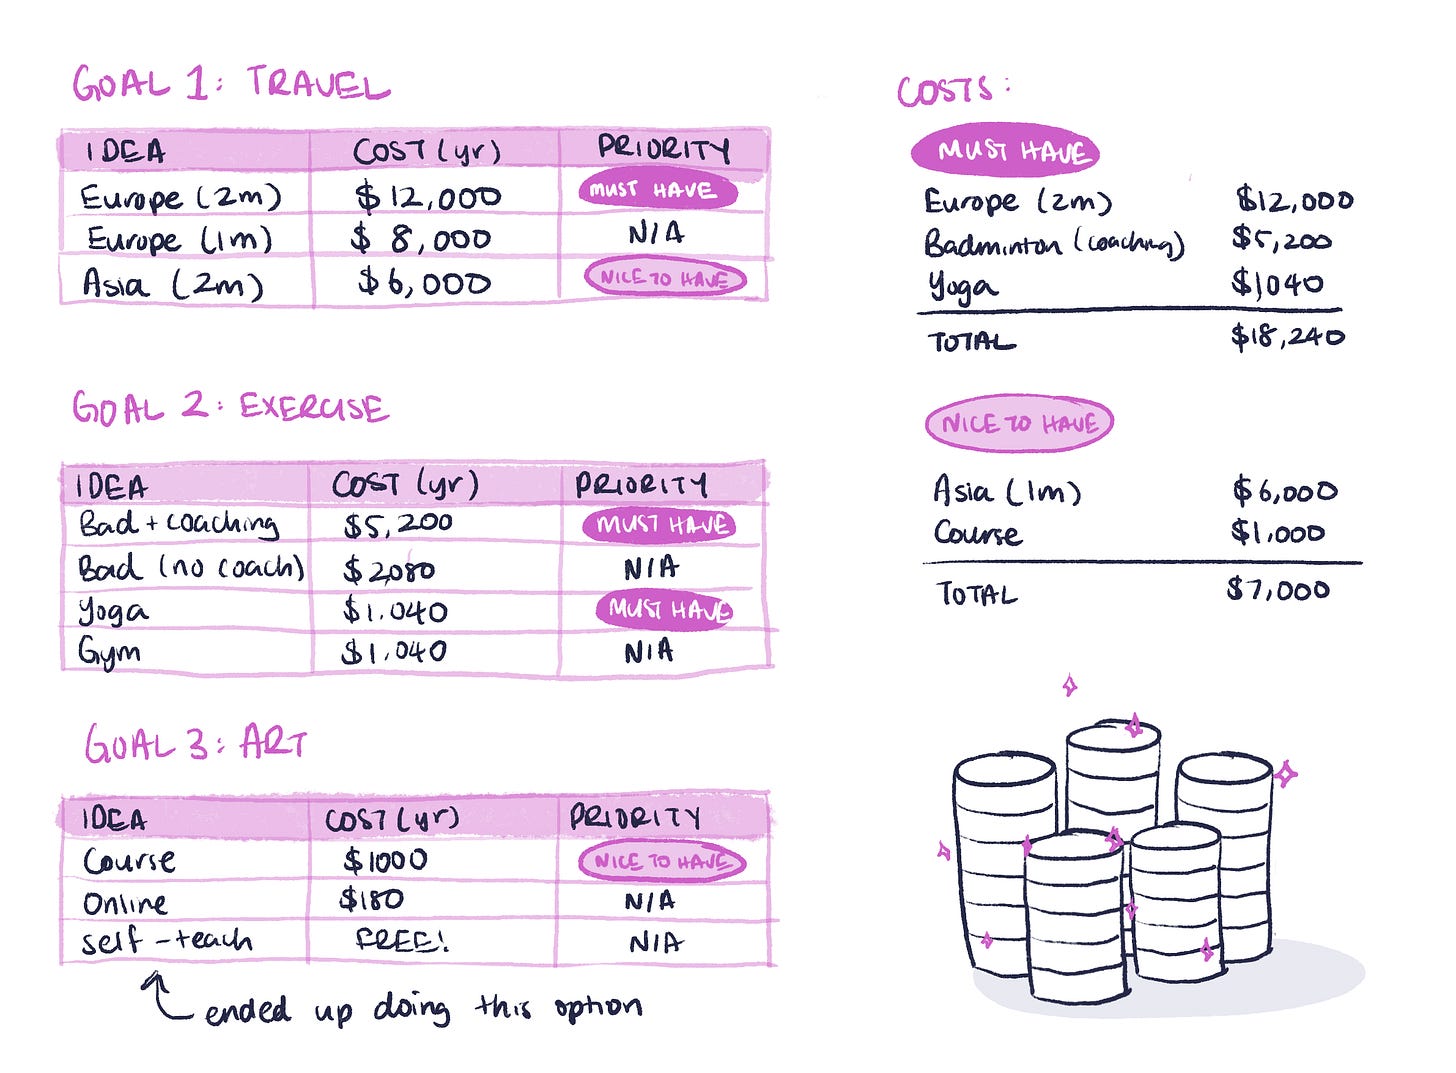 GOAL 1: TRAVEL
IDEA COST (yr) PRIORITY
Europe (2m) $12,000 MUST HAVE
Europe (1m) $ 8,000 N/A
Asia (2m) $6,000 NICE TO HAVE
GOAL 2: EXERCISE
IDEA COST (yr) PRIORITY
Bad + coaching $5,200 MUST HAVE
Bad (no coach) $2,080 N/A
Yoga $1,040 MUST HAVE
Gym $1,040 N/A
GOAL 3: ART
IDEA COST (yr) PRIORITY
Course $1000 NICE TO HAVE
Online $180 N/A
Self-teach FREE! N/A
ended up doing this option
COSTS:
MUST HAVE
Europe (2m) $12,000
Badminton (coaching) $5,200
Yoga $1,040
TOTAL $18,240
NICE TO HAVE
Asia (1m) $6,000
Course $1,000
TOTAL $7,000